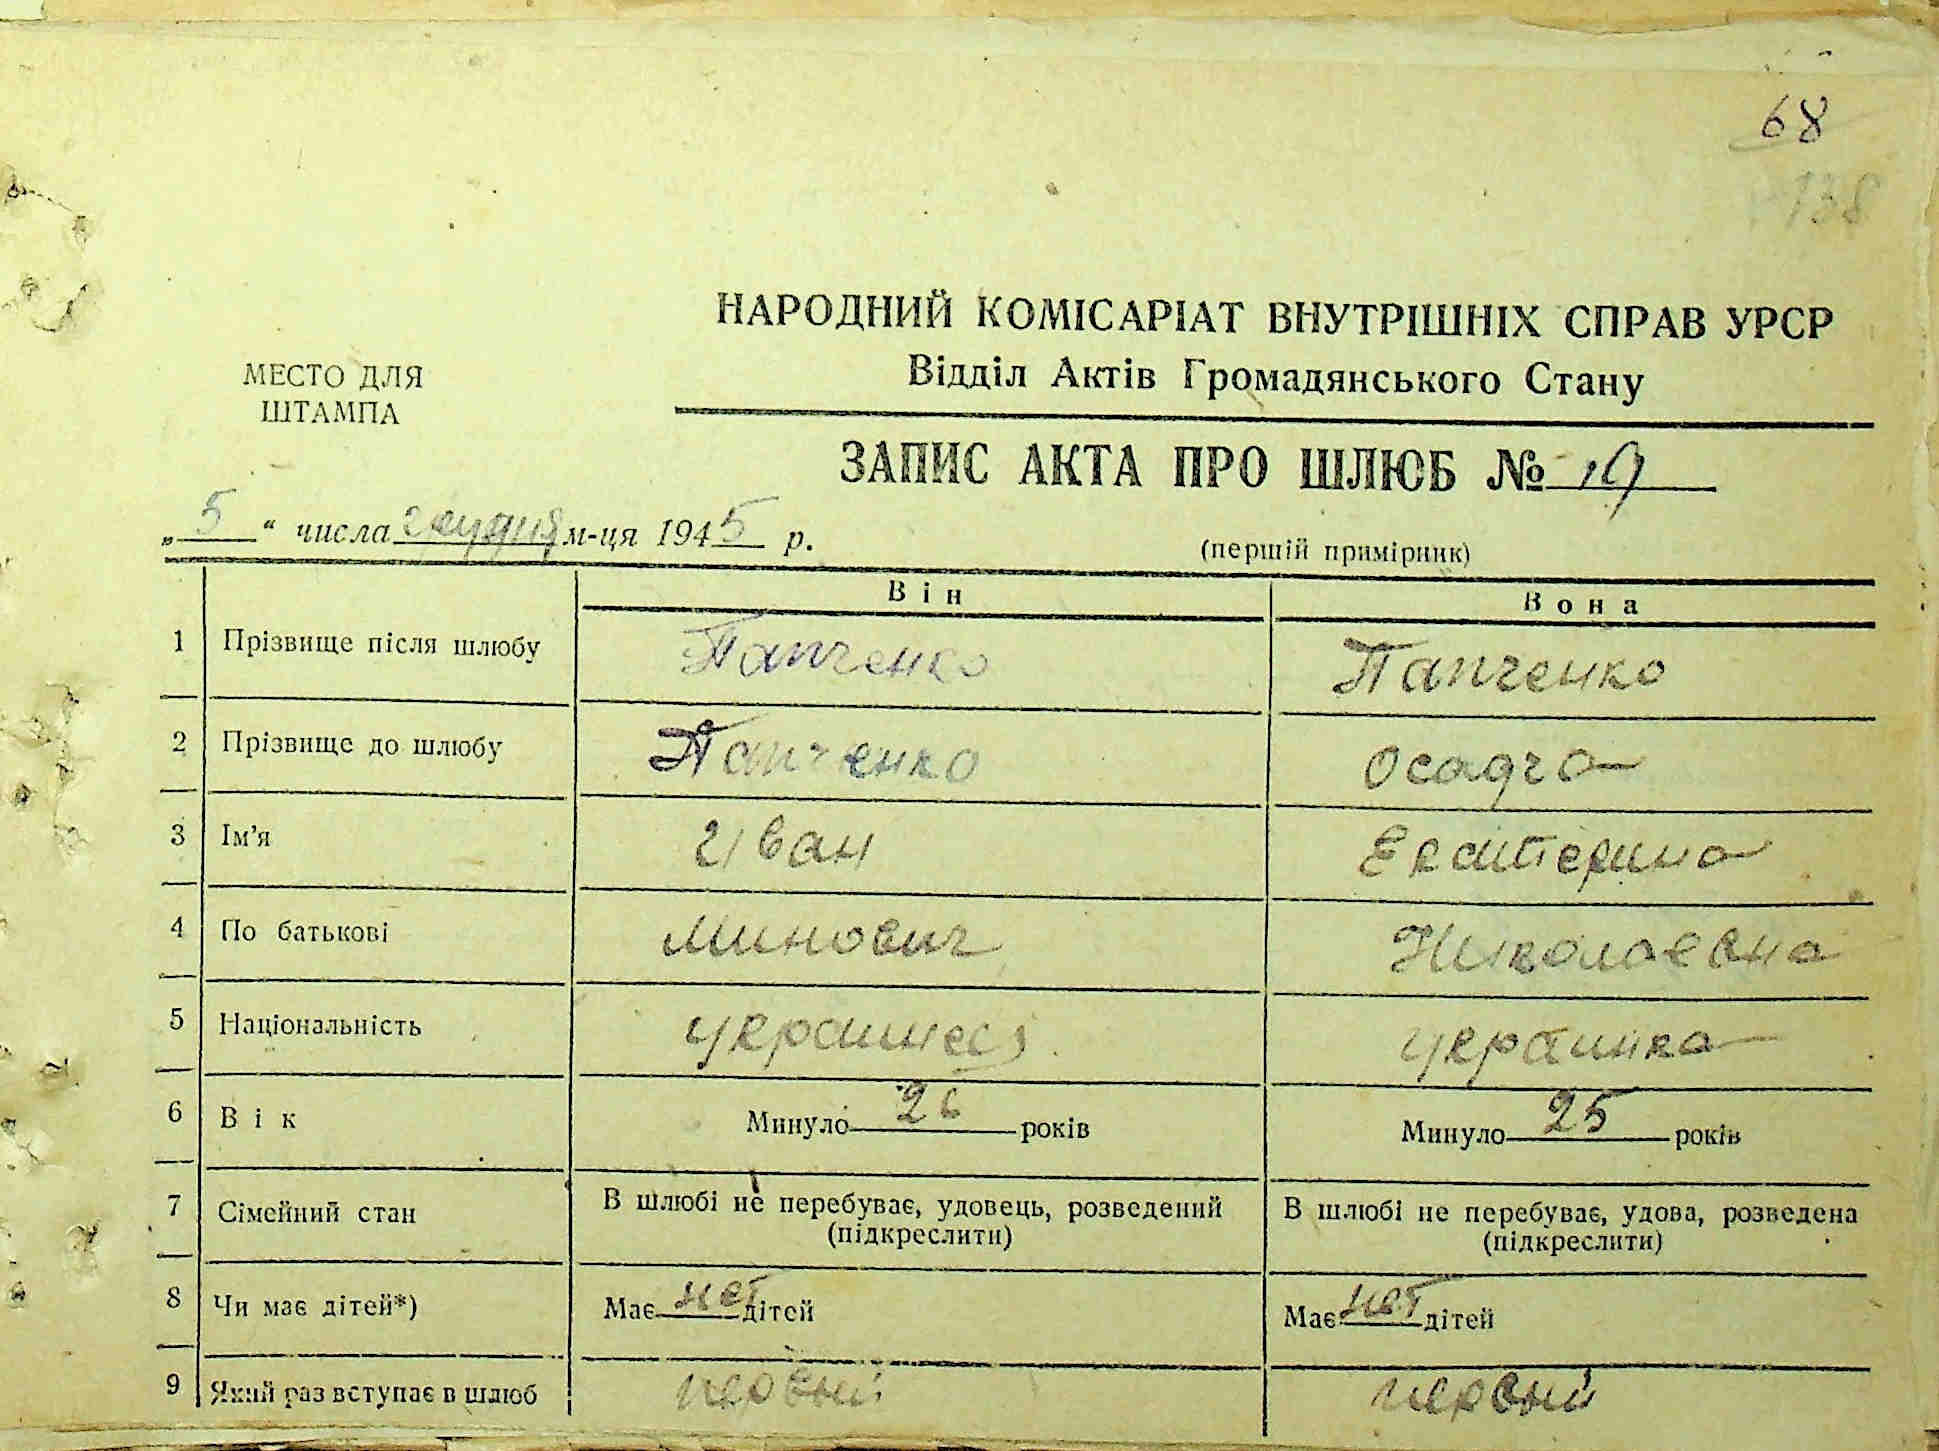 68
138
НАРОДНИЙ КОМІСАРІАТ ВНУТРІШНІХ СПРАВ УРСР
Відділ Актів Громадянського Стану
МЕСТО ДЛЯ
ШТАМПА
ЗАПИС АКТА ПРО ШЛЮБ № 19
„5“ числа грудня м-ця 1945 р.
(першій примірник)
Він Вона
1 Прізвище після шлюбу Папченко Папченко
2 Прізвище до шлюбу Папченко Осадча
3 Ім’я Иван Екатерина
4 По батькові Минович Николаевна
5 Національність украинец украинка
6 Вік Минуло 26 років Минуло 25 років
7 Сімейний стан В шлюбі не перебуває, удовець, розведений В шлюбі не перебуває, удова, розведена
(підкреслити) (підкреслити)
8 Чи має дітей*) Має нет дітей Має нет дітей
9 Який раз вступає в шлюб первый первый